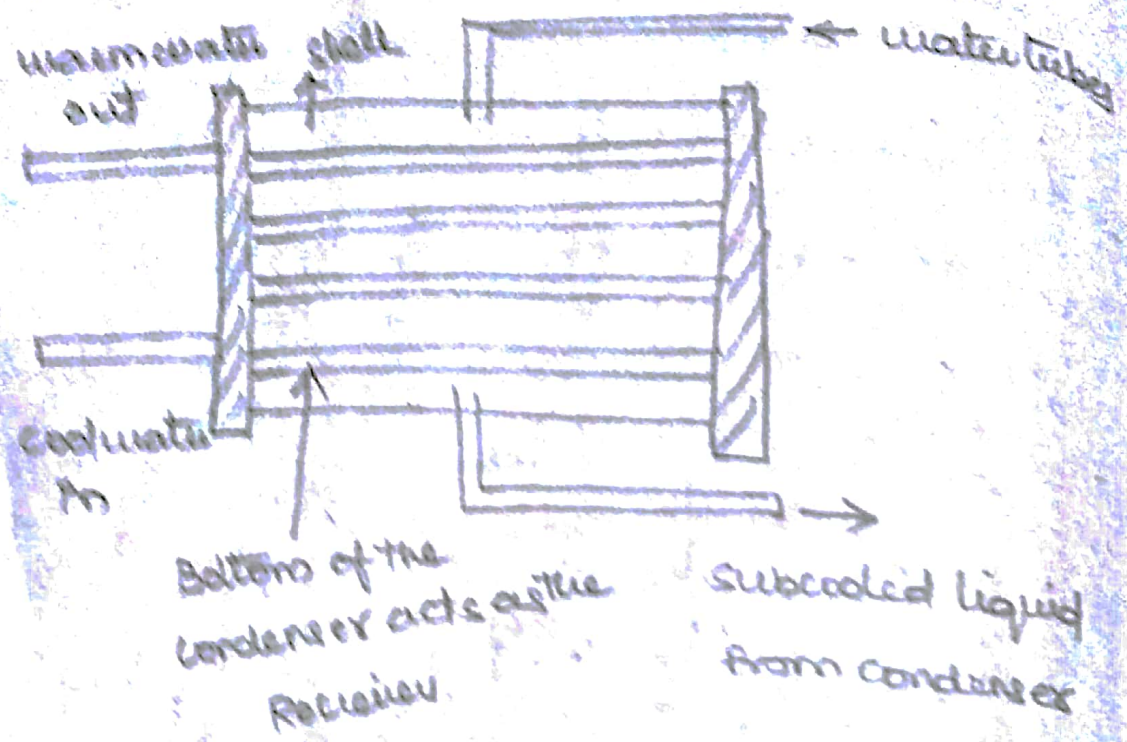 warm water
out
shell
water tubes
cool water
In
Bottom of the
condenser acts as the
Receiver
subcooled liquid
from condenser